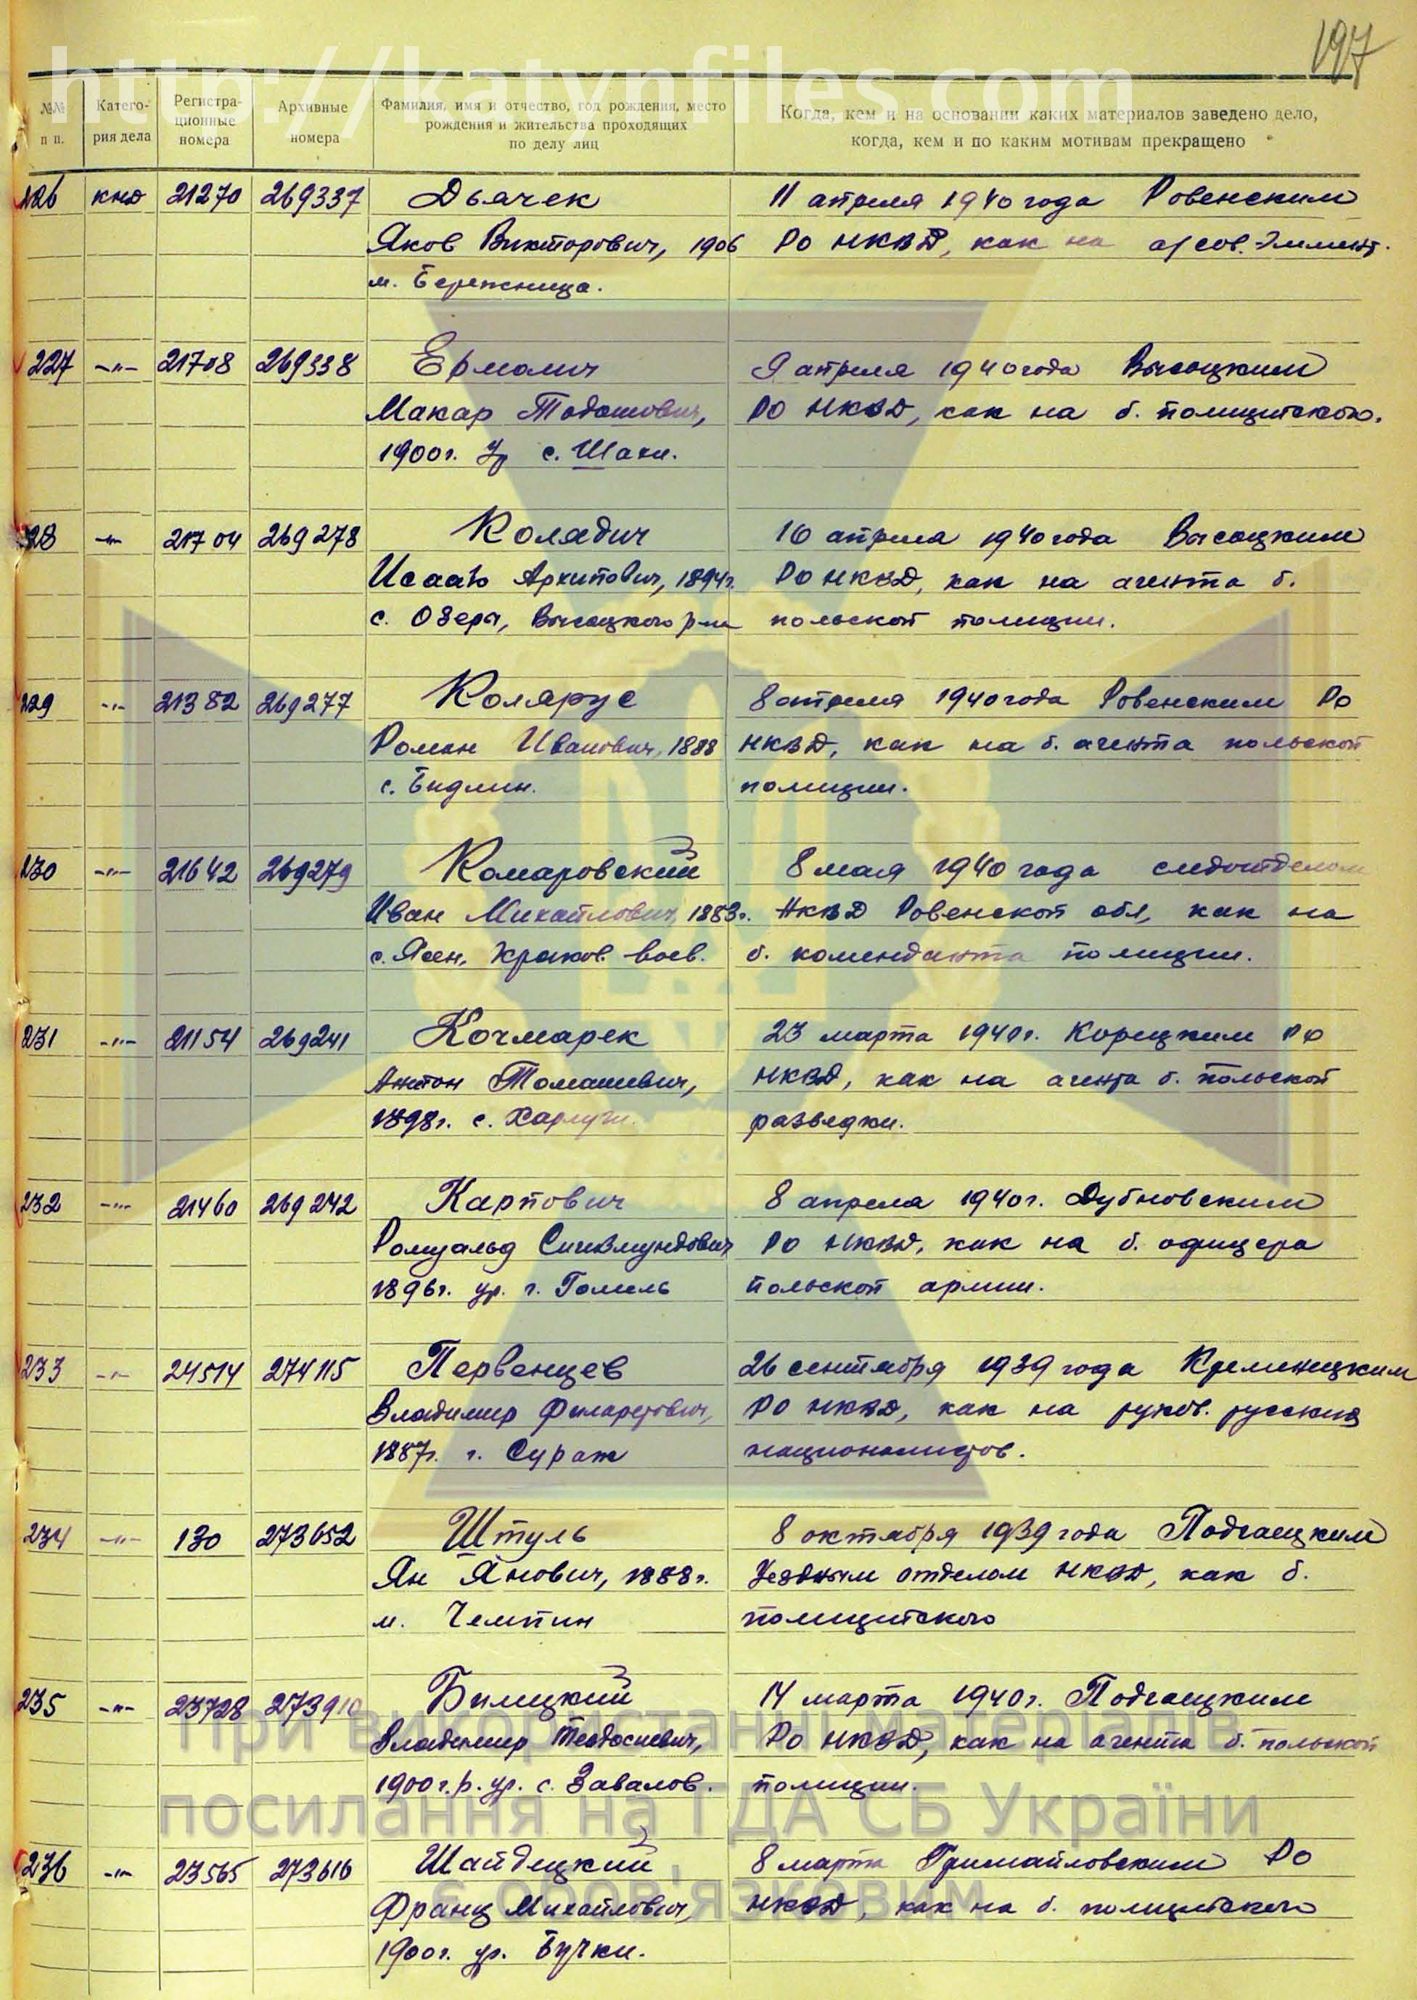 197
http://katynfiles.com
№№ п п.
Катего-
рия дела
Регистра-
ционные
номера
Архивные
номера
Фамилия, имя и отчество, год рождения, место
рождения и жительства проходящих
по делу лиц
Когда, кем и на основании каких материалов заведено дело,
когда, кем и по каким мотивам прекращено
226 кнд 21270 269337 Дьячек 11 апреля 1940 года Ровенским
Яков Викторович, 1906 РО НКВД, как на а/сов. элемент.
м. Бережница.
227 -"- 21708 269338 Ермолич 9 апреля 1940 года Высоцким
Макар Тодошович, РО НКВД, как на б. полицейского.
1900г. ур с.
228 -"- 21704 269278 Колядич 16 апреля 1940 года Высоцким
Исаак Архипович, 1894г. РО НКВД, как на агента б.
с. Озеры, Высоцкого р-на польской полиции.
229 -"- 21382 269277 Колярус 8 апреля 1940 года Ровенским РО
Роман Иванович, 1888 НКВД, как на б. агента польской
с. полиции.
230 -"- 21642 269279 Комаровский 8 мая 1940 года следотделом
Иван Михайлович, 1883г. НКВД Ровенской обл, как на
с. Ясен, Краков. воев. б. коменданта полиции.
231 -"- 21154 269241 Кочмарек 23 марта 1940г. Корецким РО
Антон Томашевич, НКВД, как на агента б. польской
1898г. с. Харлуги. разведки.
232 -"- 21460 269242 Карпович 8 апреля 1940г. Дубновским
Ромуальд Сигизмундович РО НКВД, как на б. офицера
1896г. ур. г. Гомель польской армии.
233 -"- 24514 274115 Первенцев 26 сентября 1939 года Кременецким
Владимир Филаретович, РО НКВД, как на руков. русских
1887г. г. Сураж националистов.
234 -"- 130 273652 Штуль 8 октября 1939 года Подгаецким
Ян Янович, 1888г. Уездным отделом НКВД, как б.
м. Чемпин полицейского
235 -"- 23728 273910 Билецкий 14 марта 1940г. Подгаецким
Владимир Теодосиевич, РО НКВД, как на агента б. польской
1900г.р. ур. с. Завалов. полиции.
236 -"- 23565 273616 Шайдецкий 8 марта Гримайловским РО
Франц Михайлович, НКВД, как на б. полицейского
1900г. ур. Бучки.
При використанні матеріалів
посилання на ГДА СБ України
є обов'язковим